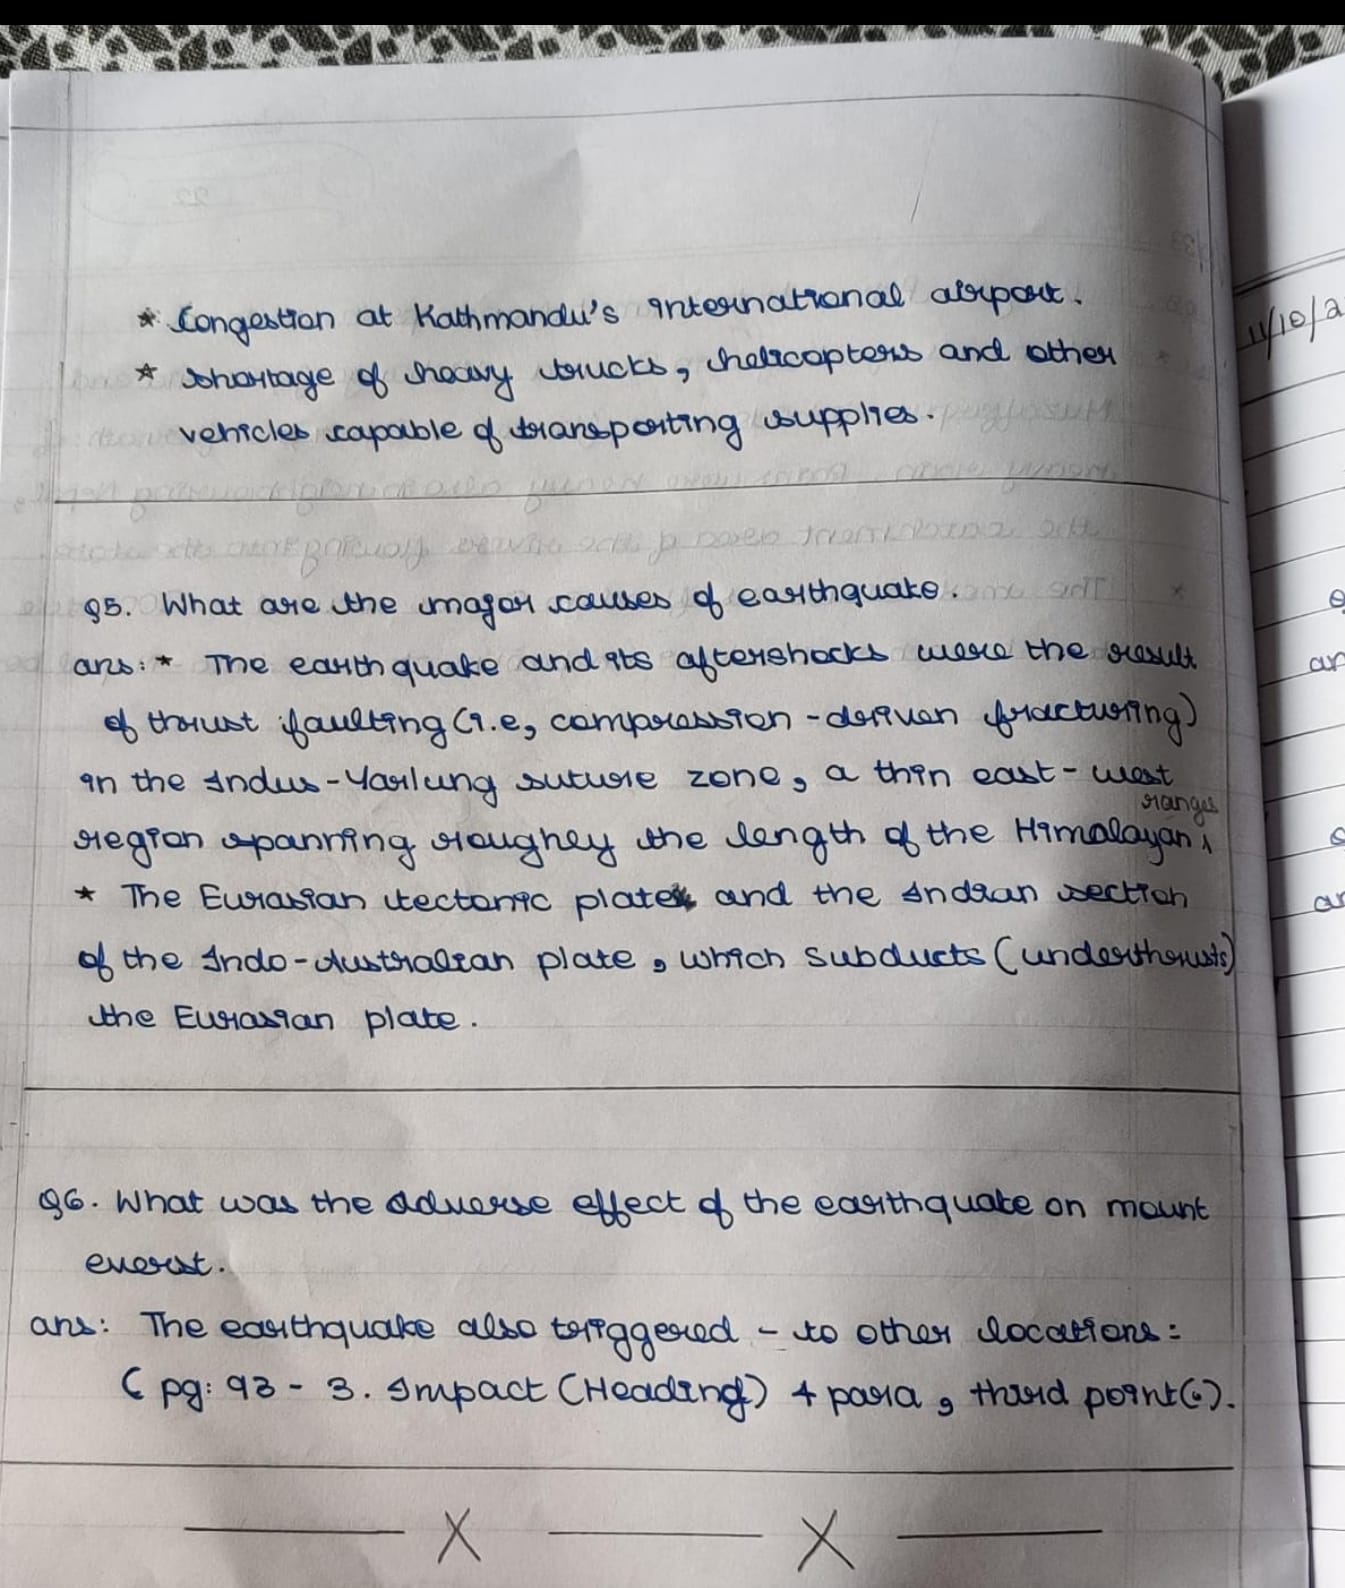 * Congestion at Kathmandu's international airport.
* shortage of heavy trucks, helicopters and other
vehicles capable of transporting supplies.
Q5. What are the major causes of earthquake.
ans: * The earthquake and its aftershocks were the result
of thrust faulting (i.e, compression - driven fracturing)
in the Indus - Yarlung suture zone, a thin east - west
ranges
region spanning roughly the length of the Himalayan
* The Eurasian tectonic plate and the Indian section
of the Indo - Australian plate, which subducts (underthrusts)
the Eurasian plate.
Q6. What was the adverse effect of the earthquake on mount
everst.
ans: The earthquake also triggered - to other locations:
( pg: 93 - 3. Impact (Heading) 4 para, third point(.).
X X
11/10/2